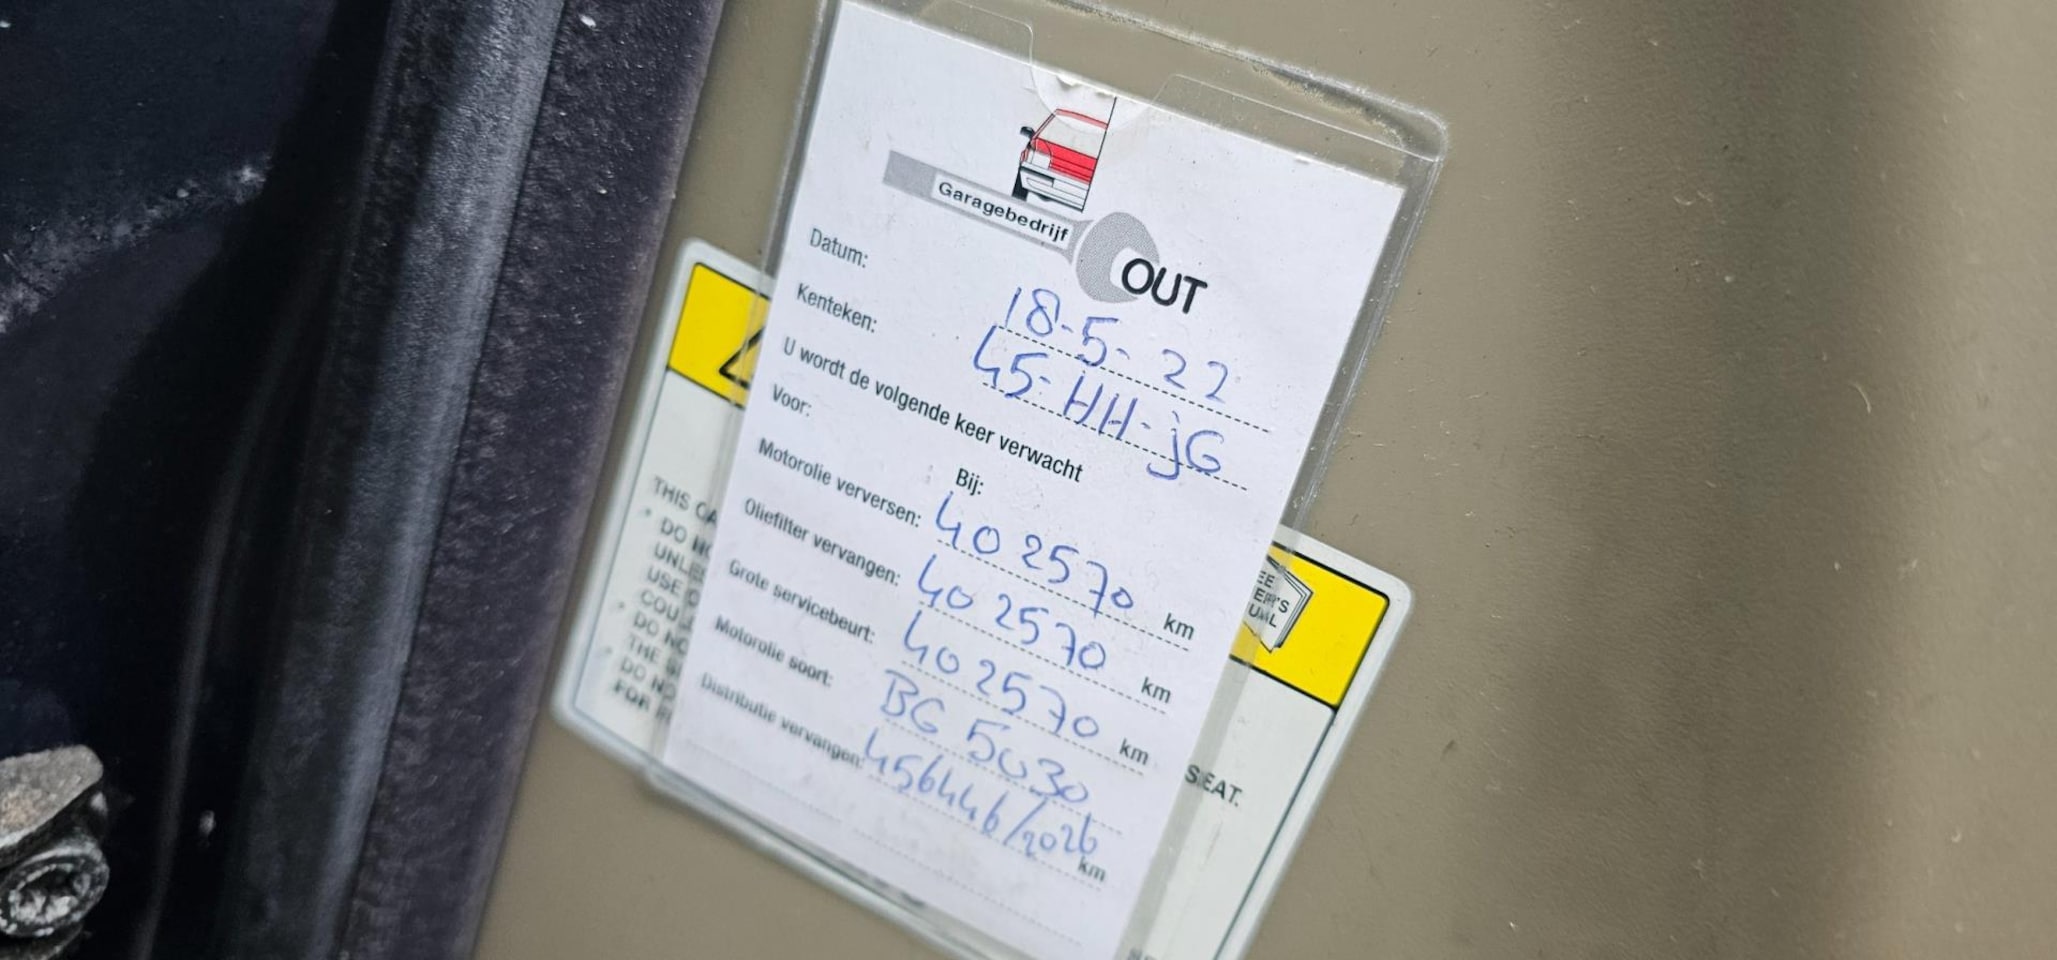 Garagebedrijf
OUT
Datum: 18-5-22
Kenteken: 45-HH-jG
U wordt de volgende keer verwacht
Voor: Bij:
Motorolie verversen: 402570 km
Oliefilter vervangen: 402570 km
Grote servicebeurt: 402570 km
Motorolie soort: BG 5030
Distributie vervangen: 456446/2026 km
THIS CA
DO NO
UNLE
USE O
COUL
DO NO
THE S
DO NO
FOR R
EE
ER'S
UAL
SEAT.